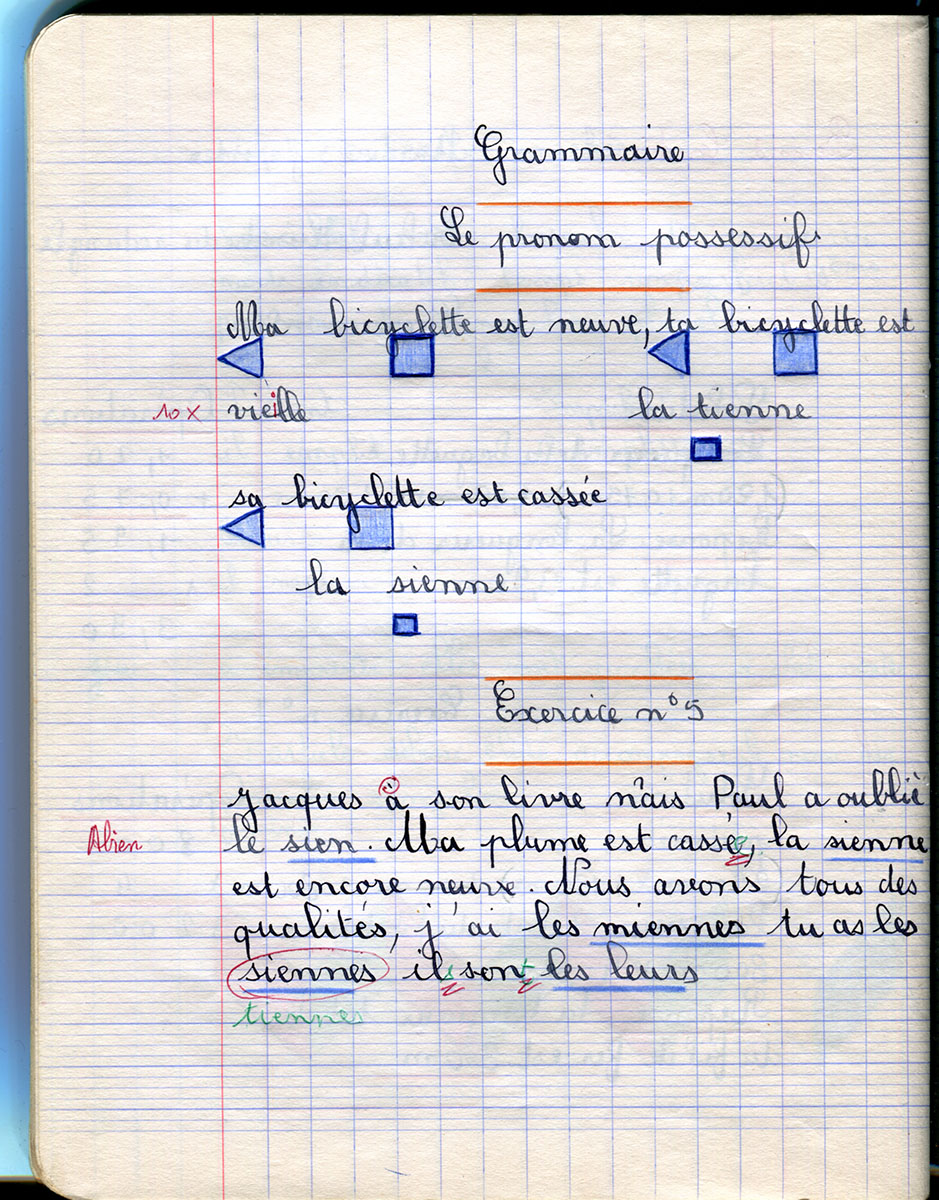 Grammaire
Le pronom possessif
Ma bicyclette est neuve, ta bicyclette est
10 x vieille la tienne
sa bicyclette est cassée
la sienne
Exercice n°5
Jacques à son livre mais Paul a oublié
A bien le sien. Ma plume est cassée, la sienne
est encore neuve. Nous avons tous des
qualités, j'ai les miennes tu as les
siennes ils sont les leurs
tiennes